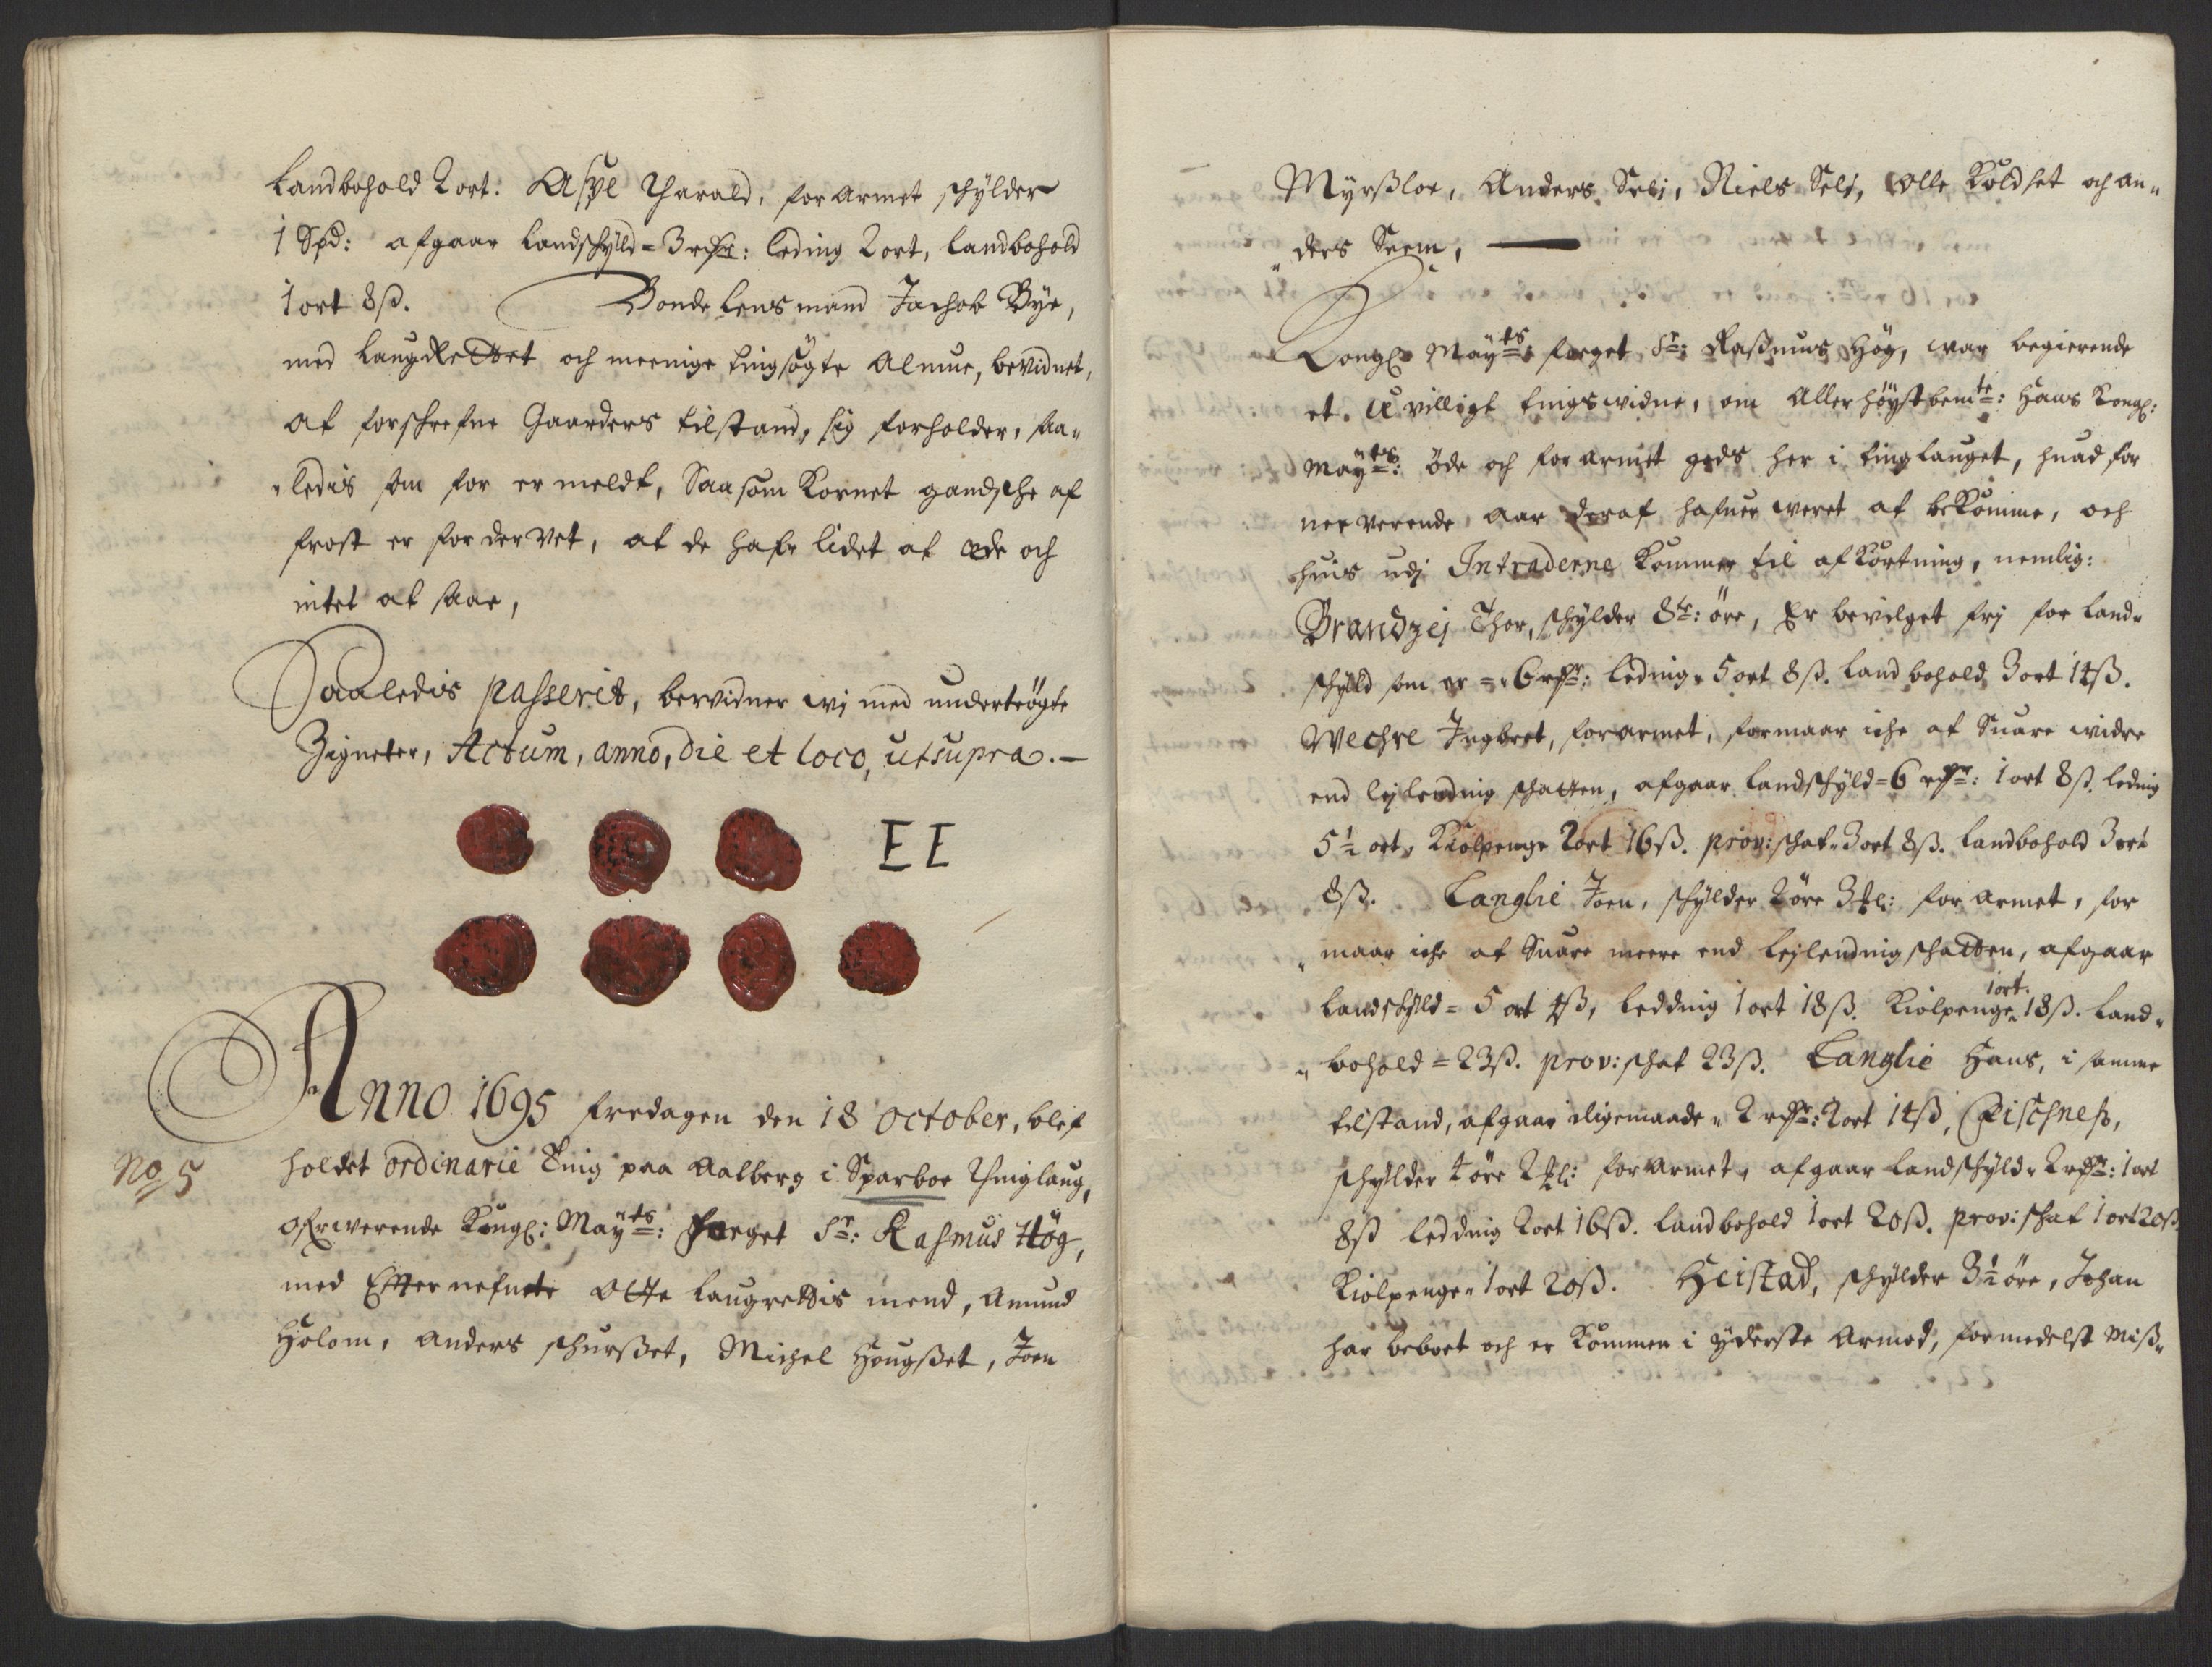 Landbohold 2 ort. Aspe Tharald, forarmet schylder
1 Spd: afgaar Landschyld = 3 rdr: leding 2 ort, Landbohold
1 ort 8 ß. Bonde Lensmand Jachob Bye,
med LaugRettet och meenige tingsøgte Almue, bevidnet,
at forschrefne Gaarders tilstand, sig forholder, saa„
„ledis som for er meldt, Saasom Kornet gandsche af
frost er fordervet, at de hafr lidet at æde och
intet at saae,
Saaledis passerit, bervidner wj med undertrögte
Zigneter, Actum, anno, die et loco, utsupra. —
EE
Anno 1695 fredagen den 18 October, blef
No 5
holdet ordinarie Ting paa Aalberg i Sparboe Thinglaug,
ofrwerende Kongl: Mayts: foeget Sr: Rasmus Hög,
med Efternefnte Otte Laugrettis mend, Amund
Holom, Anders schurßet, Michel Hougßet, Joen
Myrßloe, Anders Selj, Niels Selj, Olle Koldset och an„
„ders Seem, —
Kongl Mayts: foeget Sr: Raßmus Høg, war begierende
et uvilligt tingswidne, om Allerhøystbemte: Hans Kongl:
Mayts: øde och forarmet gods her i tinglauget, huad for
nerverende aar deraf hafuer weret at bekomme, och
huis udj Intraderne kommer til afkortning, nemlig:
Brandzej Thor, schylder 8te: øre, Er bevilget frj for Land„
schyld som er = 6 rdr: leding 5 ort 8 ß. Landbohold 3 ort 14 ß.
Wechre Ingbret, forarmet, formaar iche at Suare widre
end lejlending schatten, afgaar Landschyld = 6 rdr: 1 ort 8 ß. leding
5 ½ ort, Kiølpenge 2 ort 16 ß. prov: schat 3 ort 8 ß. Landbohold 3 ort
8 ß. Langlie Joen, schylder 2 øre 3 #l: forarmet, for
„maar iche at Suare meere end Lejlending schatten, afgaar
Landschyld = 5 ort 4 ß, ledding 1 ort 18 ß. Kiølpenge 1 ort 18 ß. Land„
„bohold = 23 ß. prov: schat 23 ß. Langlie Hans, i samme
tilstand, afgaar ligemaade 2 rdr: 2 ort 14 ß, Fischness,
schylder 4 øre 2 #l: forarmet, afgaar Landschyld 2 rdr: 1 ort
8 ß ledding 2 ort 16 ß. Landbohold 1 ort 20 ß. prov: schat 1 ort 20 ß
Kiølpenge 1 ort 20 ß. Heistad, schylder 3 ½ øre, Johan
har beboet och er kommen i yderste Armod, formedelst Miß„